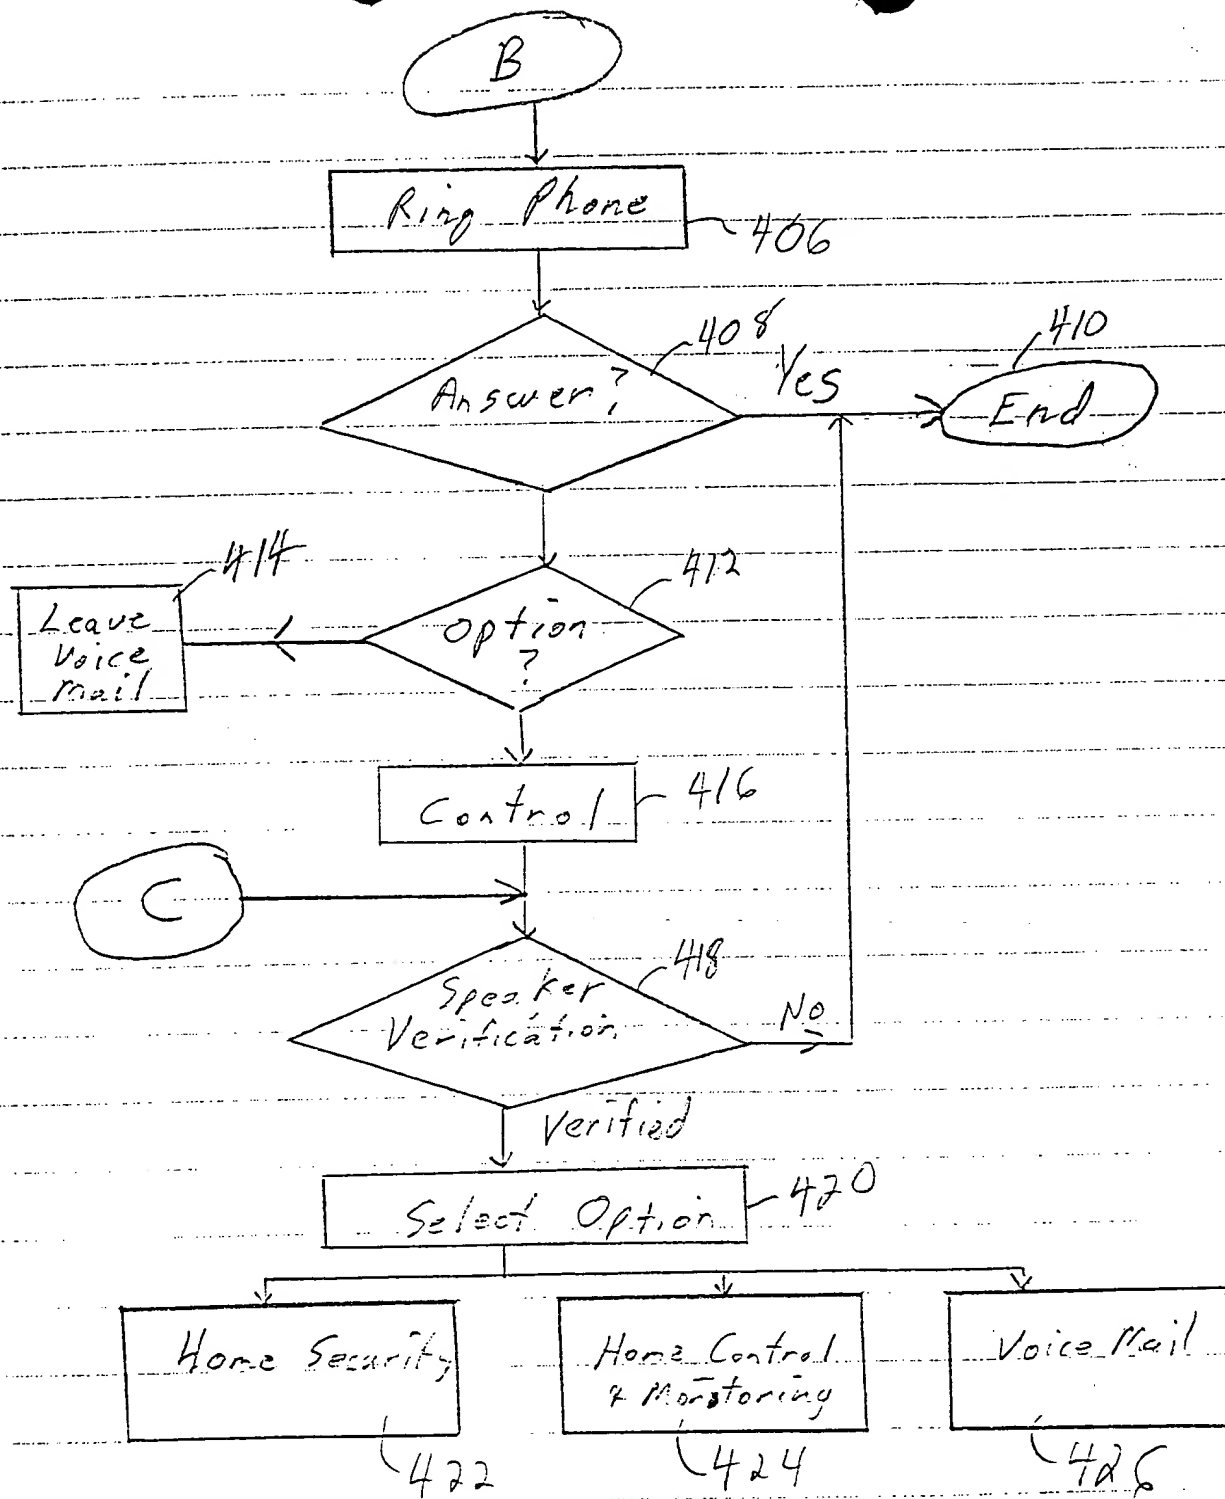 B
Ring Phone
406
408
Answer?
Yes
410
End
412
414
Leave
Voice
Mail
Option
?
Control
416
C
418
Speaker
Verification
No
Verified
Select Option
420
Home Security
Home Control
& Monitoring
Voice Mail
422
424
426